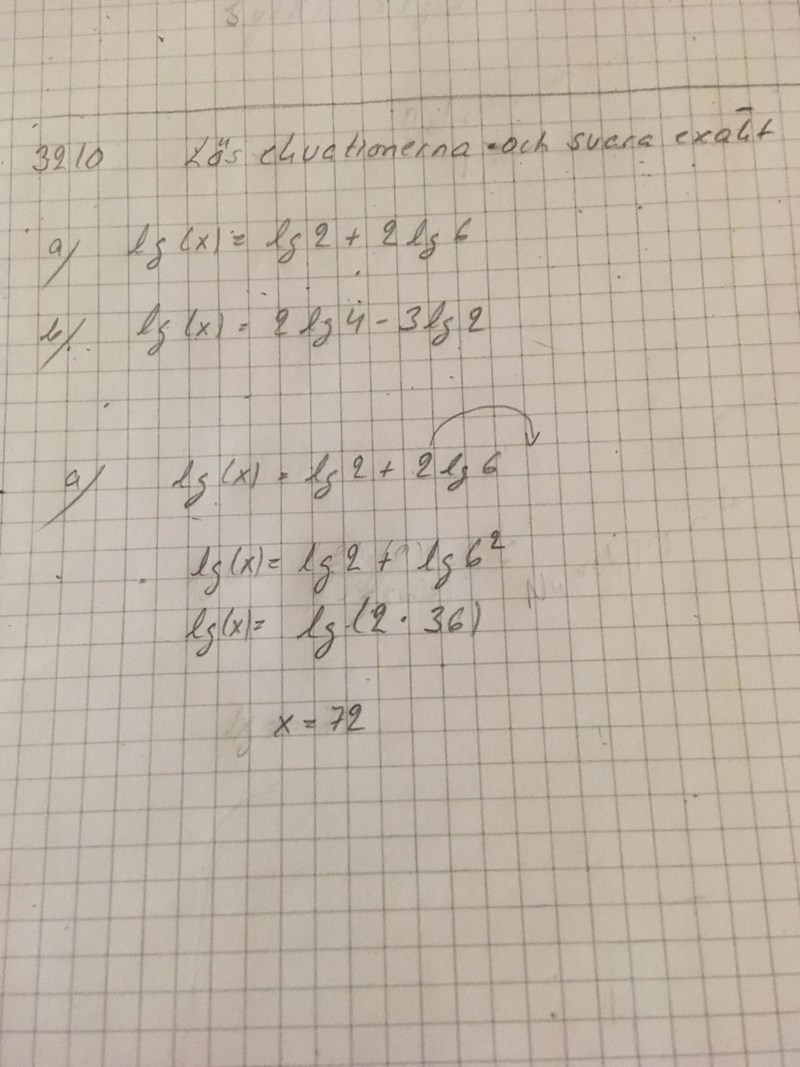 3210 Lös ekvationerna och svara exakt
a) lg (x) = lg 2 + 2 lg 6
b) lg (x) = 2 lg 4 - 3 lg 2
a) lg (x) = lg 2 + 2 lg 6
lg (x) = lg 2 + lg 6²
lg (x) = lg (2 · 36)
x = 72